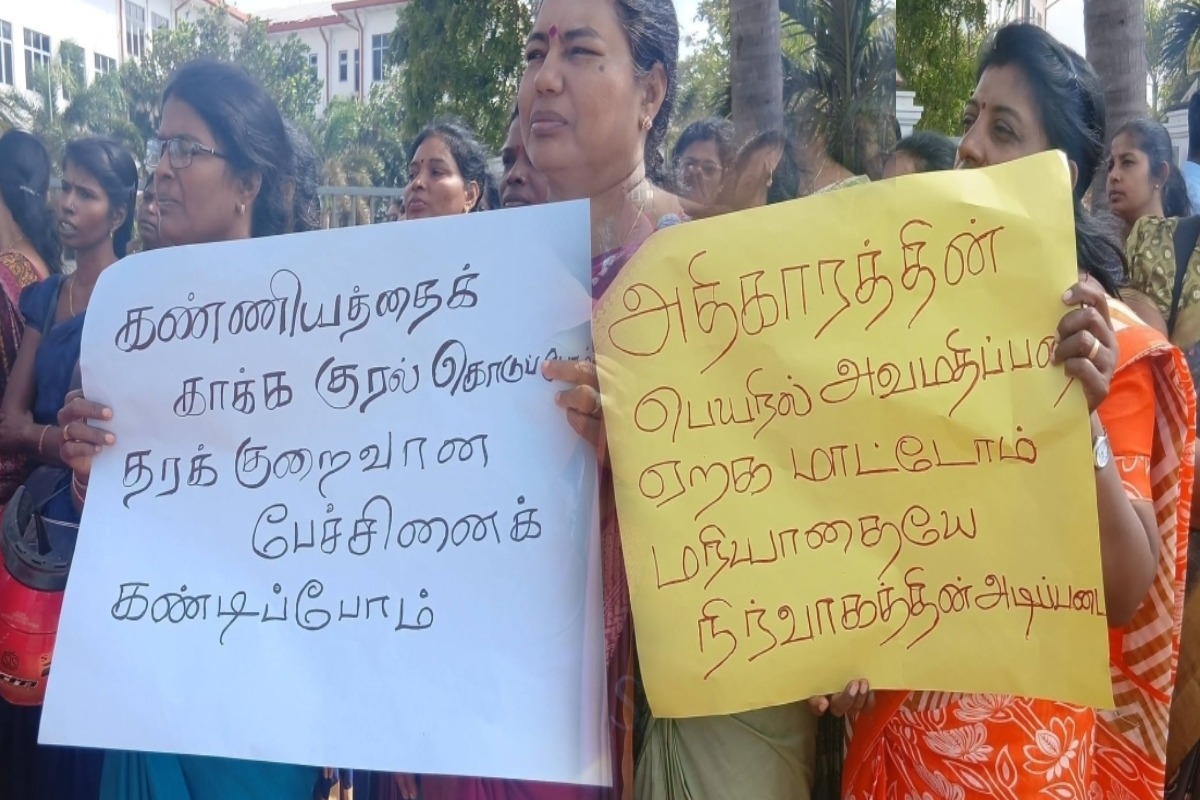 கண்ணியத்தைக்
காக்க குரல் கொடுப்போம்
தரக் குறைவான
பேச்சினைக்
கண்டிப்போம்
அதிகாரத்தின்
பெயரில் அவமதிப்பை
ஏற்க மாட்டோம்
மரியாதையே
நிர்வாகத்தின் அடிப்படை